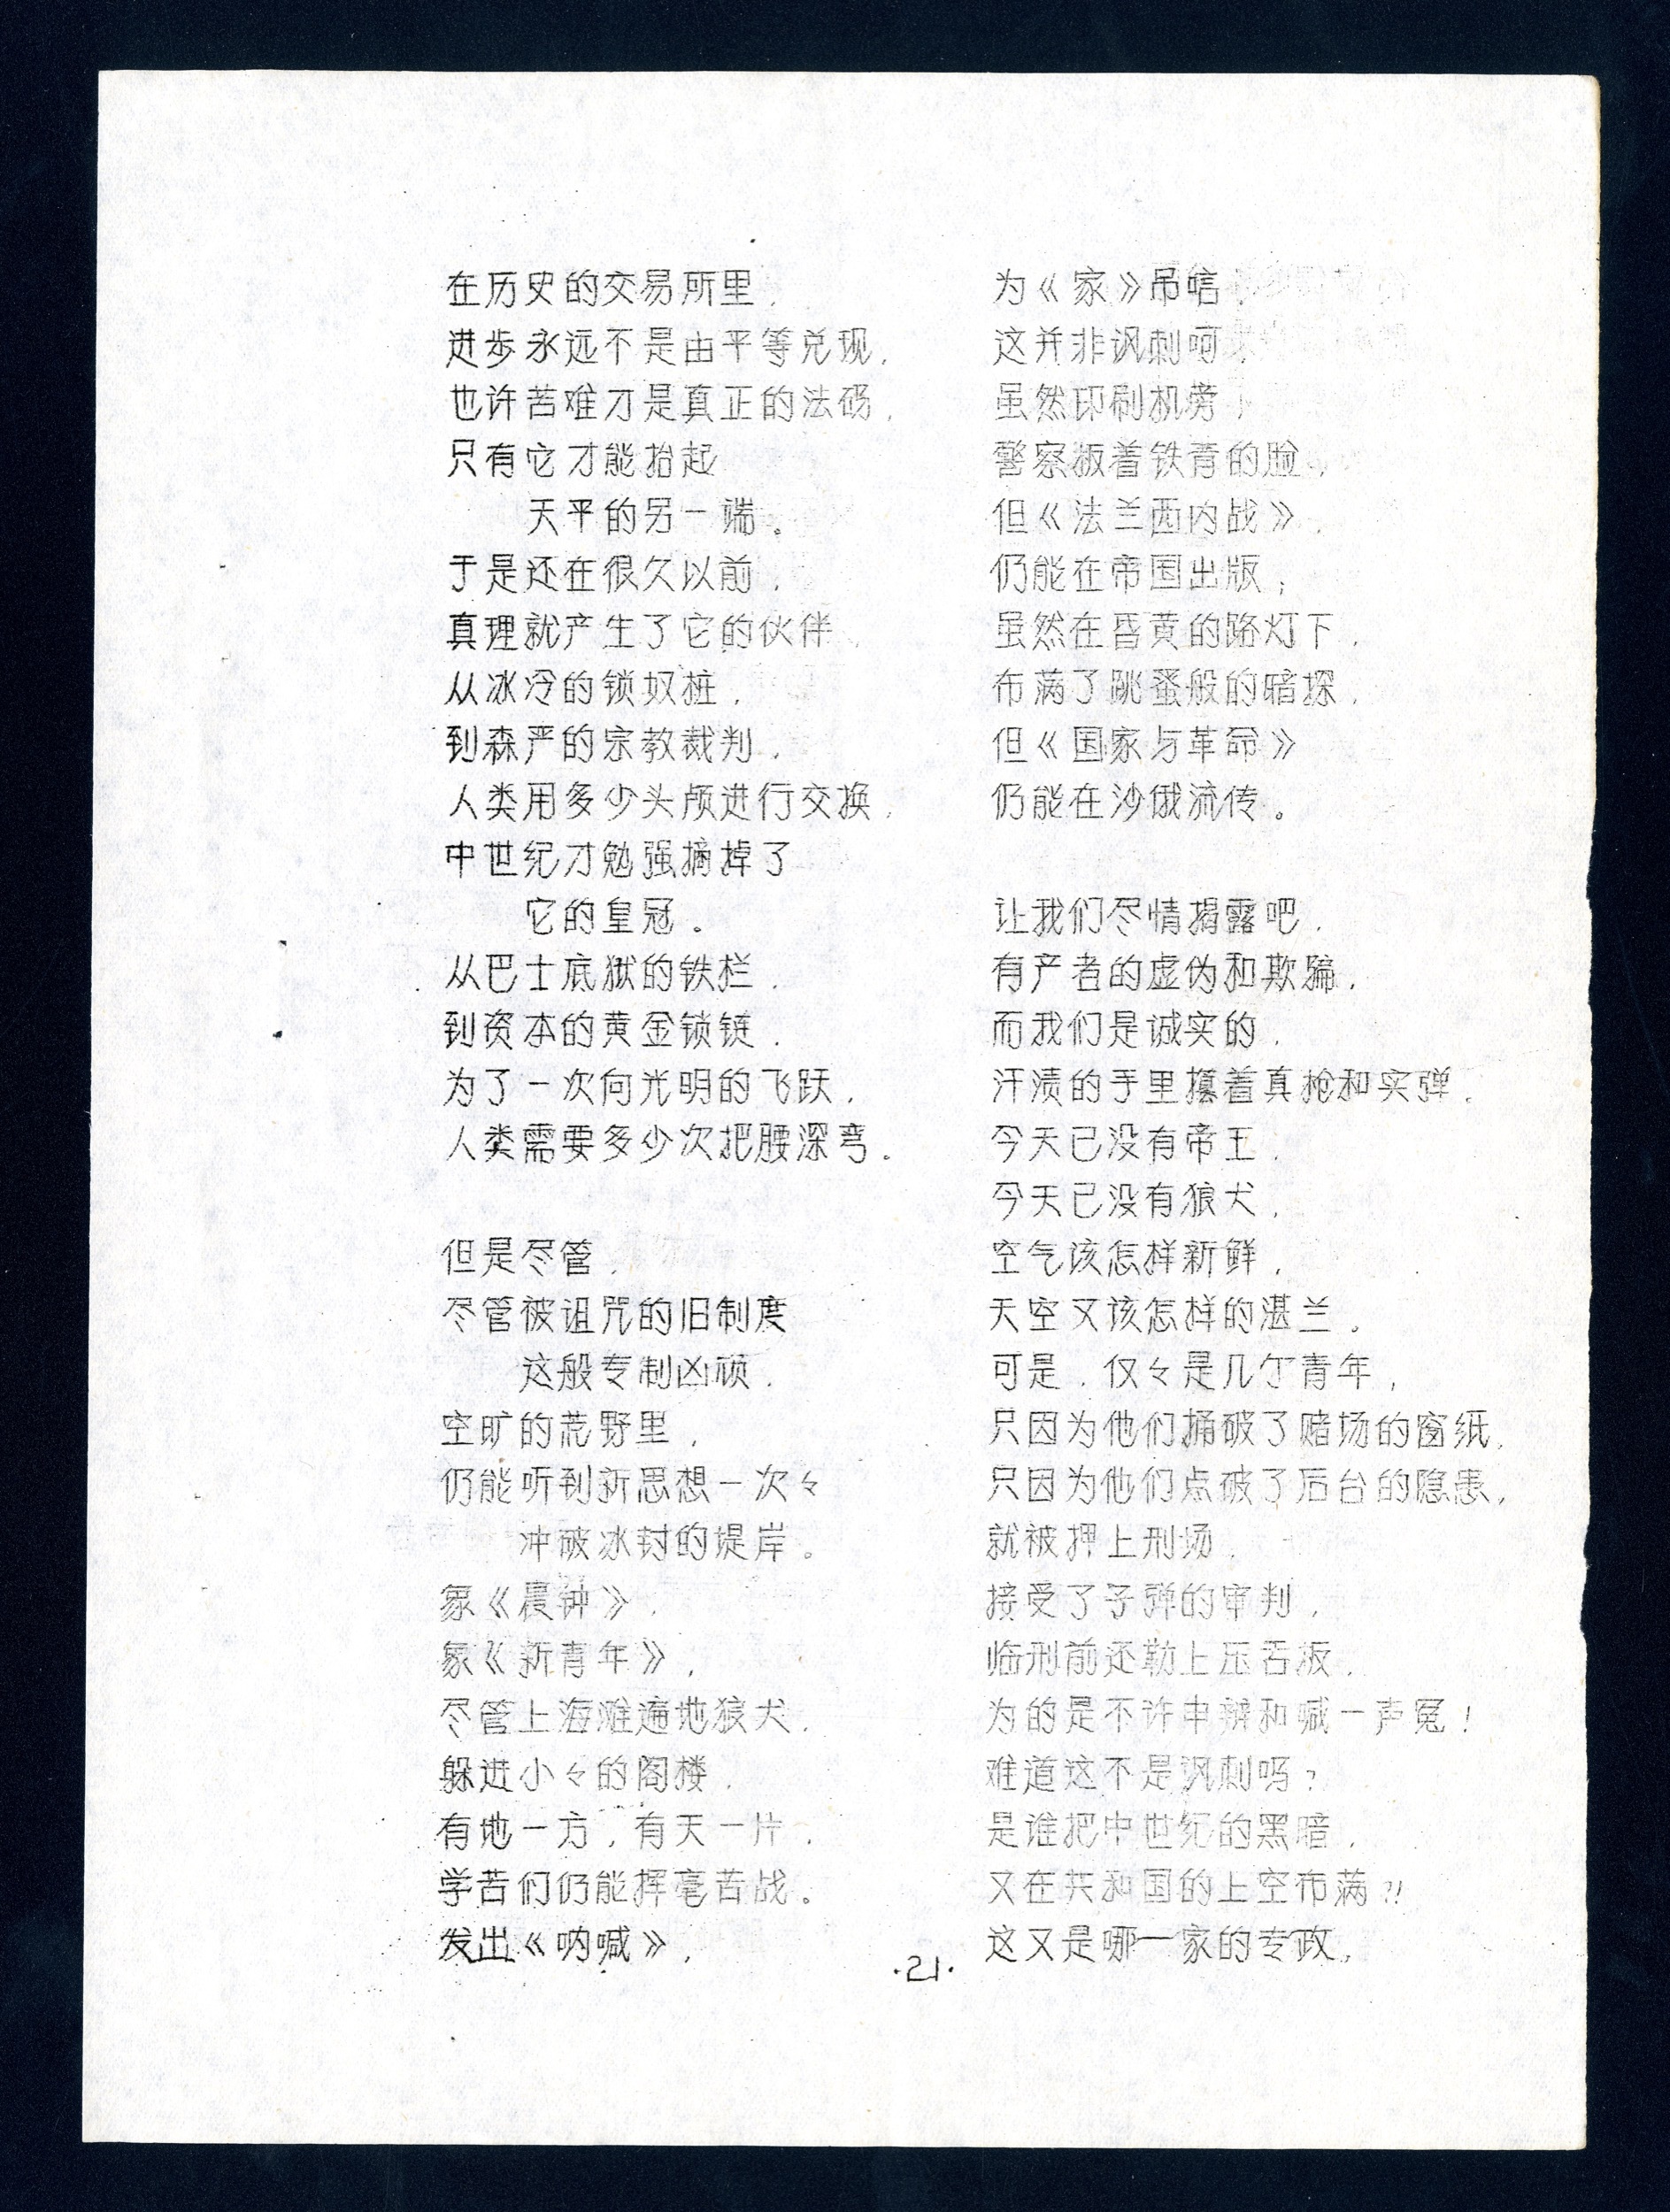 在历史的交易所里，
进步永远不是由平等兑现，
也许苦难才是真正的法码，
只有它才能抬起
天平的另一端。
于是还在很久以前，
真理就产生了它的伙伴，
从冰冷的锁奴桩，
到森严的宗教裁判，
人类用多少头颅进行交换，
中世纪才勉强摘掉了
它的皇冠。
从巴士底狱的铁栏，
到资本的黄金锁链，
为了一次向光明的飞跃，
人类需要多少次把腰深弯。
但是尽管，
尽管被诅咒的旧制度
这般专制凶顽，
空旷的荒野里，
仍能听到新思想一次々
冲破冰封的堤岸。
象《晨钟》，
象《新青年》，
尽管上海滩遍地狼犬，
躲进小々的阁楼，
有地一方，有天一片，
学苦们仍能挥毫苦战。
发出《呐喊》，
为《家》吊唁，
这并非讽刺呵
虽然印刷机旁，
警察板着铁青的脸，
但《法兰西内战》，
仍能在帝国出版；
虽然在昏黄的路灯下，
布满了跳蚤般的暗探，
但《国家与革命》
仍能在沙俄流传。
让我们尽情揭露吧，
有产者的虚伪和欺骗，
而我们是诚实的，
汗渍的手里攥着真枪和实弹。
今天已没有帝王，
今天已没有狼犬，
空气该怎样新鲜，
天空又该怎样的湛兰。
可是，仅々是几个青年，
只因为他们捅破了赌场的窗纸，
只因为他们点破了后台的隐患，
就被押上刑场，
接受了子弹的审判，
临刑前还勒上压舌板，
为的是不许申辩和喊一声冤！
难道这不是讽刺吗？
是谁把中世纪的黑暗，
又在共和国的上空布满？！
这又是哪一家的专政，
·21·